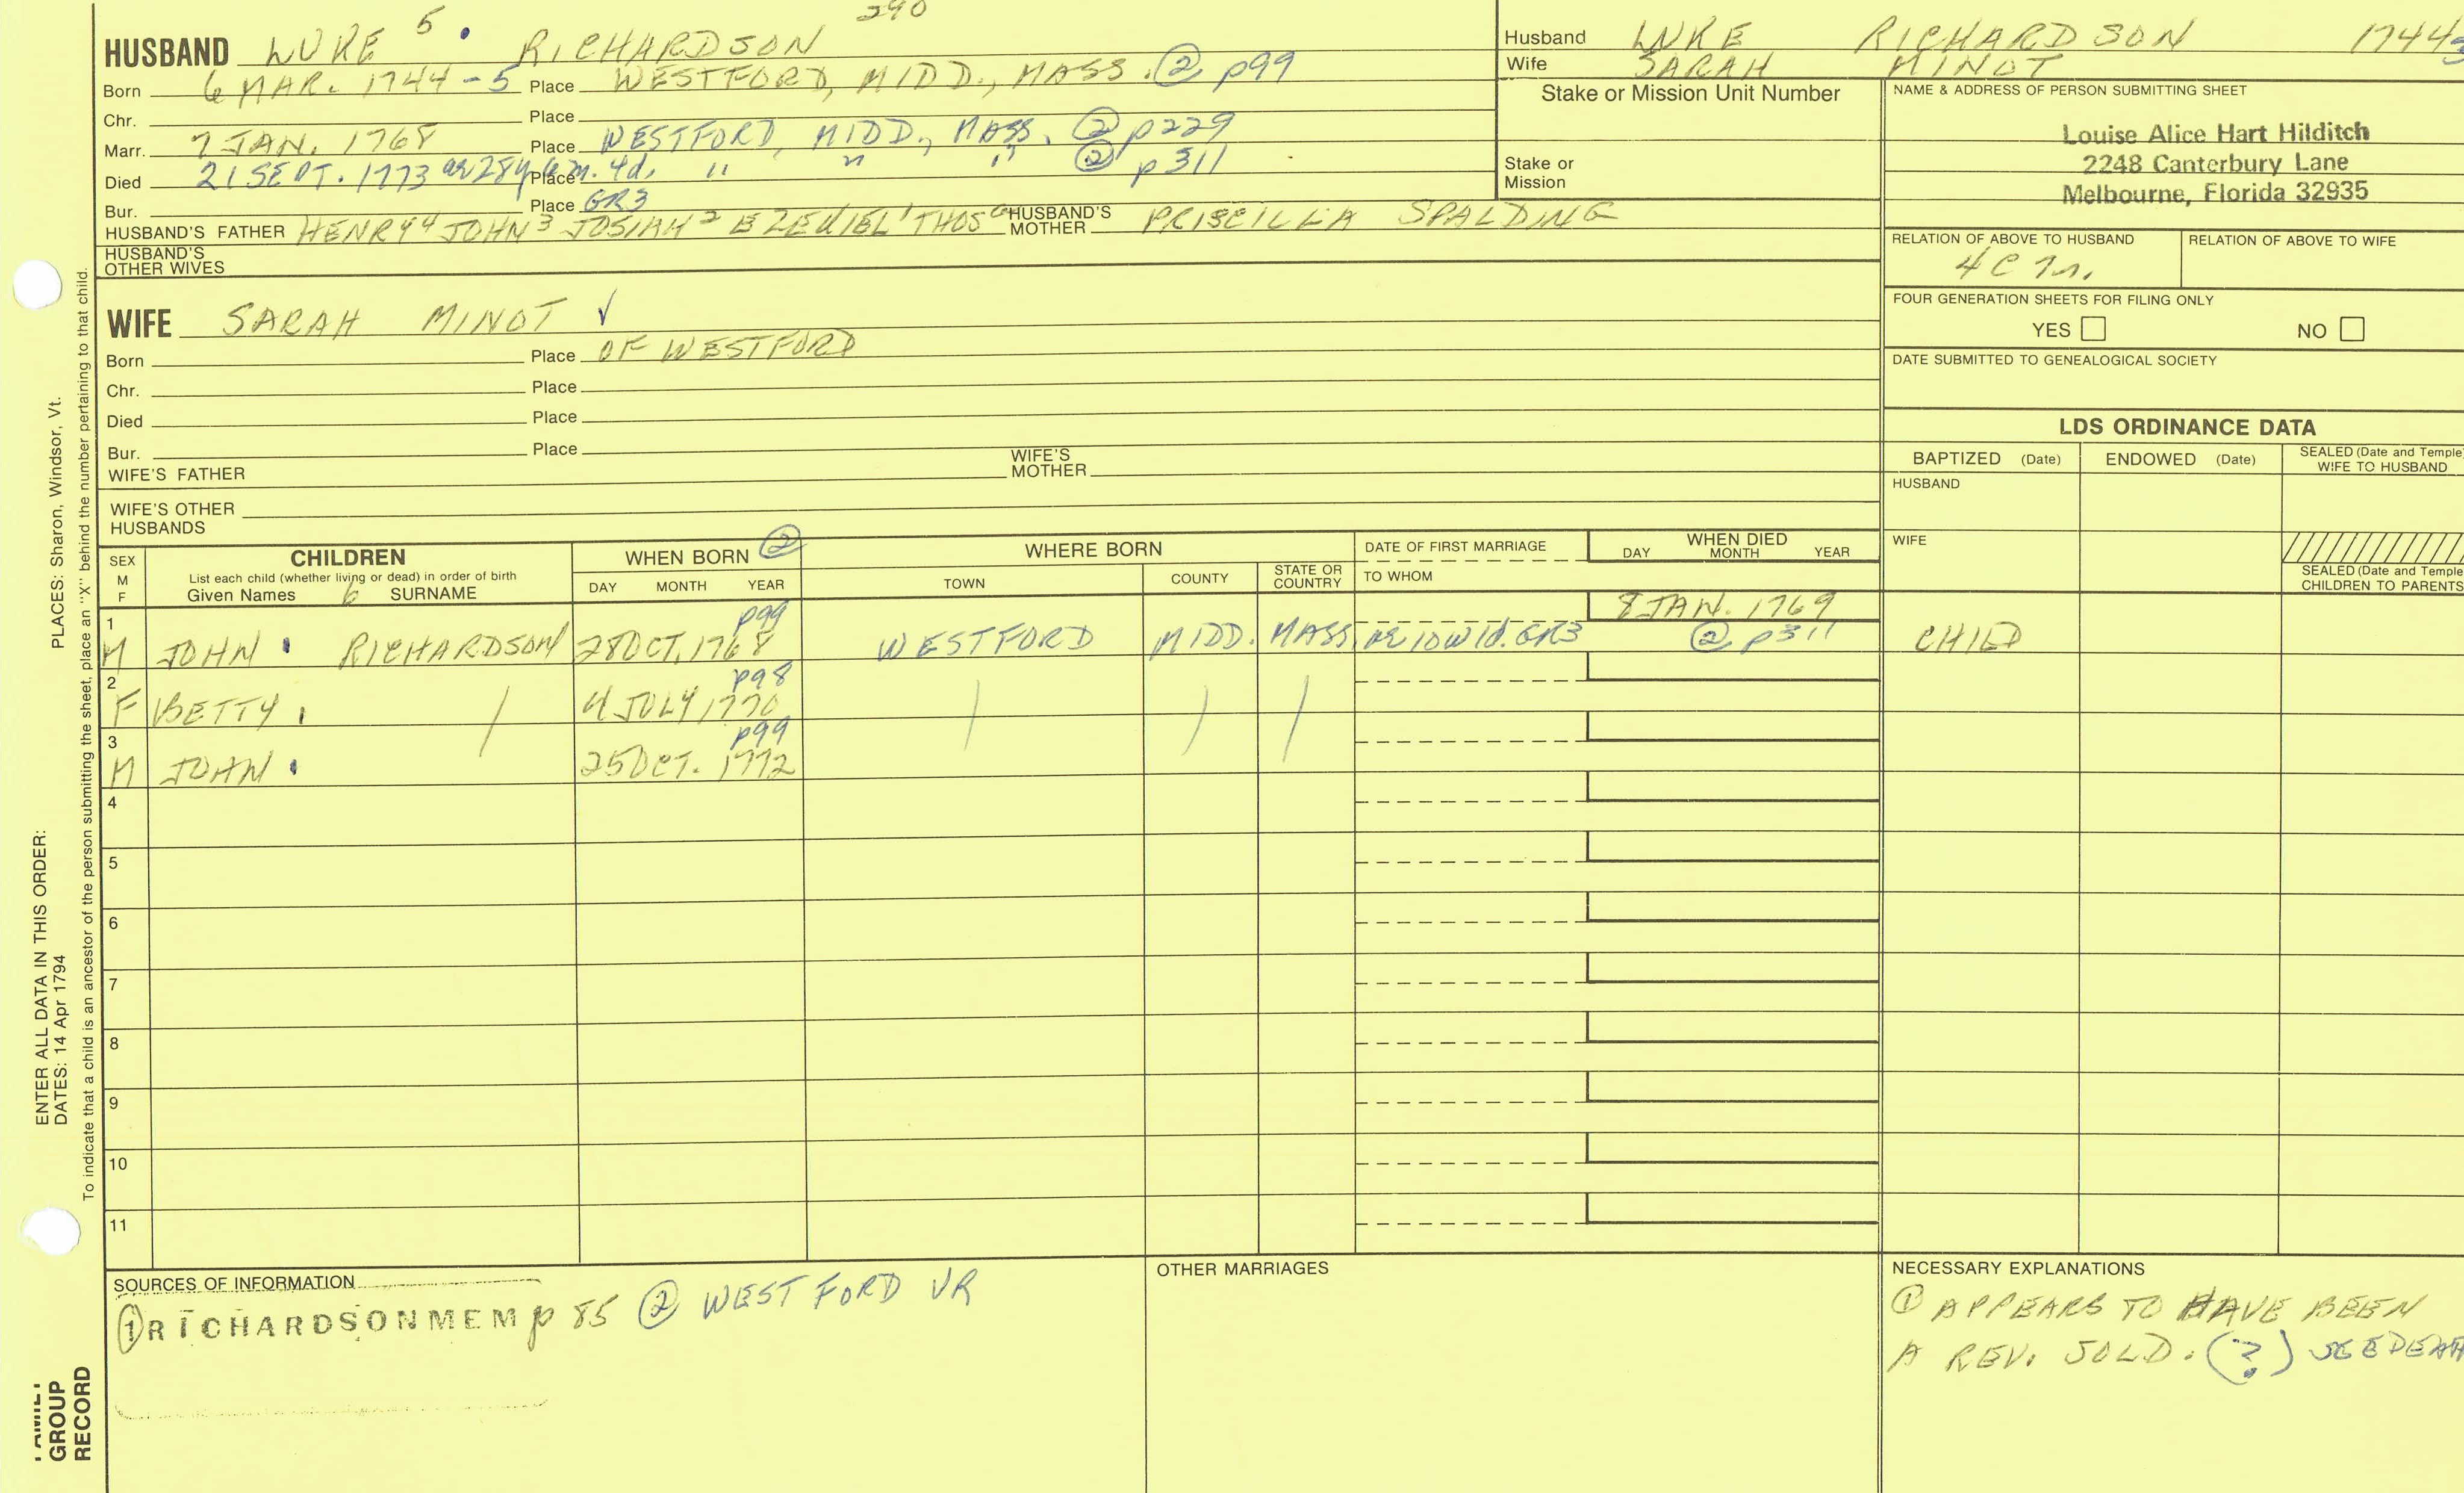 290
HUSBAND LUKE 5 . RICHARDSON
Born 6 MAR. 1744-5 Place WESTFORD, MIDD., MASS. ② p99
Chr. Place
Marr. 7 JAN. 1768 Place WESTFORD, MIDD., MASS. ② p229
Died 21 SEPT. 1773 ae 28y 6 m. 4d. Place " " " ② p311
Bur. Place GR3
HUSBAND'S FATHER HENRY4 JOHN3 JOSIAH2 EZEKIEL1 THOS HUSBAND'S MOTHER PRISCILLA SPALDING
HUSBAND'S OTHER WIVES
Husband LUKE RICHARDSON 1744
Wife SARAH MINOT
Stake or Mission Unit Number
Stake or Mission
NAME & ADDRESS OF PERSON SUBMITTING SHEET
Louise Alice Hart Hilditch
2248 Canterbury Lane
Melbourne, Florida 32935
RELATION OF ABOVE TO HUSBAND RELATION OF ABOVE TO WIFE
FOUR GENERATION SHEETS FOR FILING ONLY
YES NO
DATE SUBMITTED TO GENEALOGICAL SOCIETY
WIFE SARAH MINOT ✓
Born Place OF WESTFORD
Chr. Place
Died Place
Bur. Place
WIFE'S FATHER WIFE'S MOTHER
WIFE'S OTHER HUSBANDS
LDS ORDINANCE DATA
BAPTIZED (Date) ENDOWED (Date) SEALED (Date and Temple) WIFE TO HUSBAND
HUSBAND
WIFE
SEALED (Date and Temple) CHILDREN TO PARENTS
SEX M F
CHILDREN
List each child (whether living or dead) in order of birth
Given Names 6 SURNAME
WHEN BORN ②
DAY MONTH YEAR
WHERE BORN
TOWN COUNTY STATE OR COUNTRY
DATE OF FIRST MARRIAGE
TO WHOM
WHEN DIED
DAY MONTH YEAR
1 p99 8 JAN. 1769
M JOHN RICHARDSON 28 OCT. 1768 WESTFORD MIDD. MASS. ae 10w 1d. GR3 ② p311 CHILD
2 p98
F BETTY 4 JULY 1770
3 p99
M JOHN 25 OCT. 1772
4
5
6
7
8
9
10
11
SOURCES OF INFORMATION
① RICHARDSON MEM p 85 ② WESTFORD VR
OTHER MARRIAGES
NECESSARY EXPLANATIONS
① APPEARS TO HAVE BEEN
A REV. SOLD. (?) SEE DEATH
PLACES: Sharon, Windsor, Vt.
ENTER ALL DATA IN THIS ORDER:
DATES: 14 Apr 1794
To indicate that a child is an ancestor of the person submitting the sheet, place an "X" behind the number pertaining to that child.
FAMILY
GROUP
RECORD